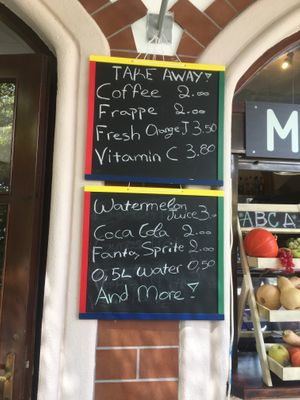 TAKE AWAY!
Coffee 2.00
Frappe 2.00
Fresh Orange J 3.50
Vitamin C 3.80
Watermelon
Juice 3.-
Coca Cola 2.00
Fanta, Sprite 2.00
0,5L Water 0,50
And More!
M
ABCA